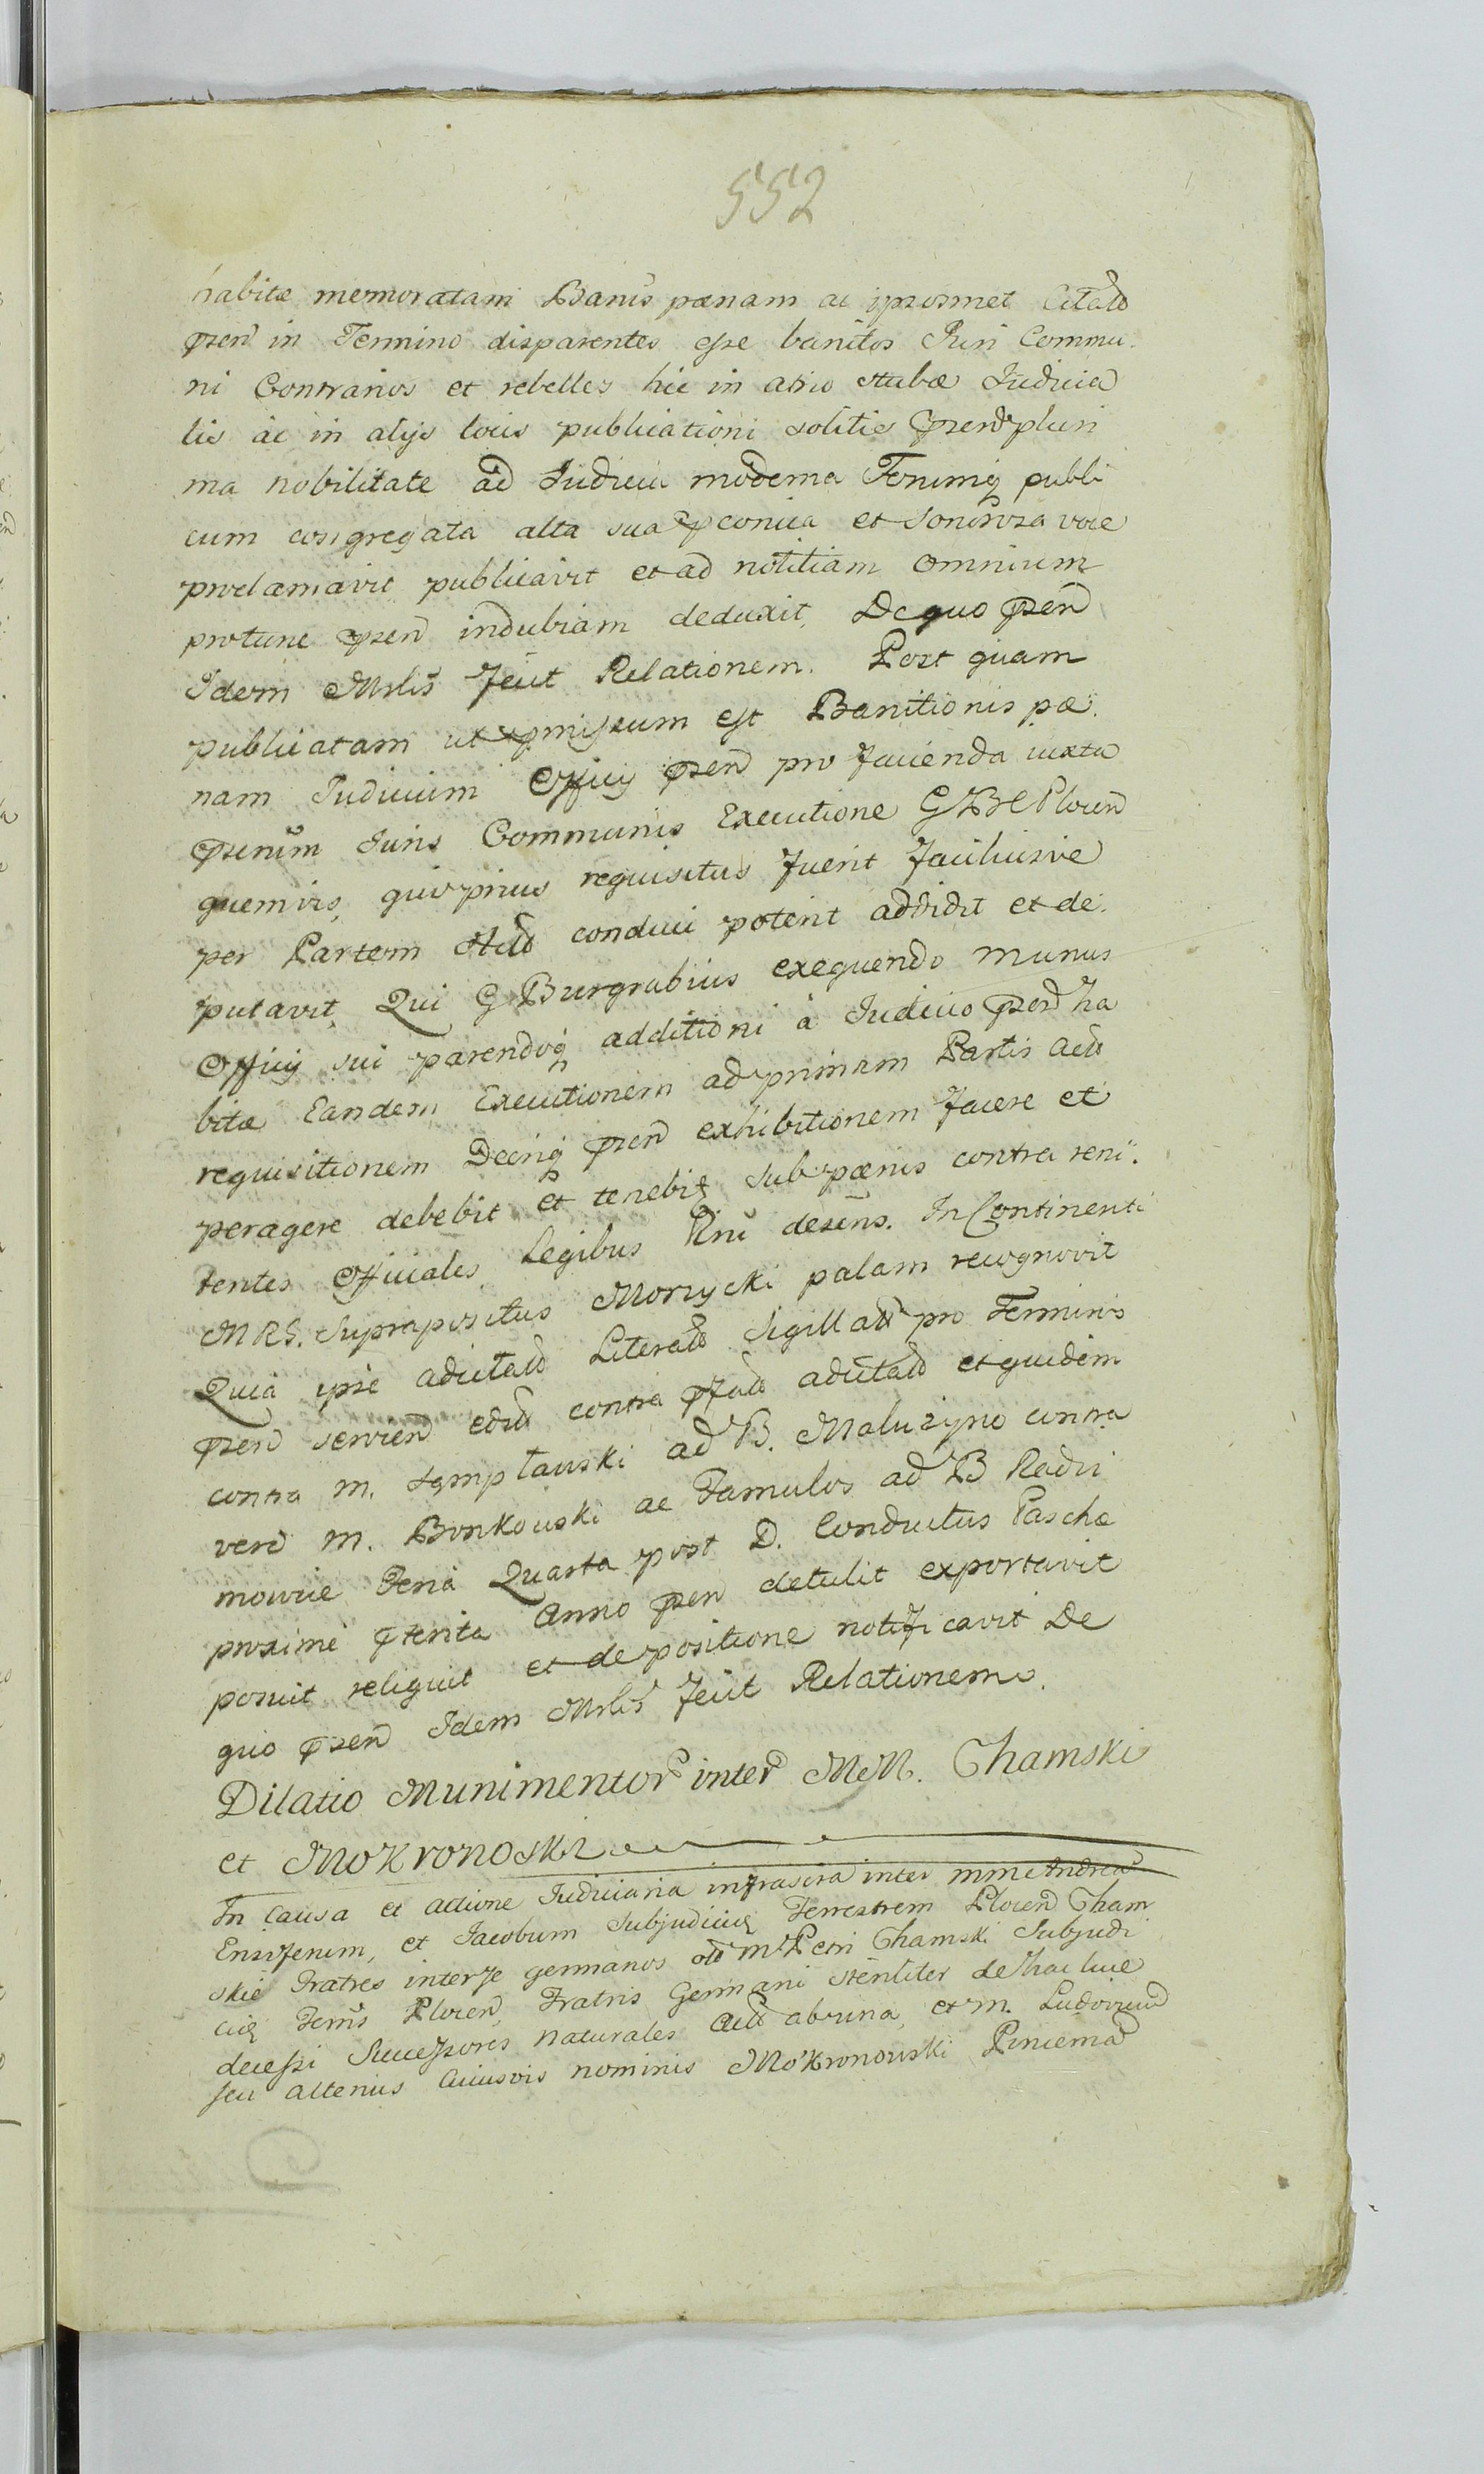 552
habitæ memoratam Banis pœnam ac ipsosmet Citatos
psen in Termino disparentes esse banitos Juri Commu
ni Contrarios et rebelles hic in atrio stubæ Judicia
lis ac in alijs locis publicationi solitis psen pluri
ma nobilitate ad Judicia moderna Forumq publi
cum congregata alta sua pconica et Sonorosa voce
proclamavit publicavit et ad notitiam omnium
protunc psen indubiam deduxit, De quo psen
Idem Mrlis fecit Relationem. Post quam
publicatam ut pmissum est Banitionis pœ.
nam Judicium Officij psen pro facienda iuxta
Juris Communis Executione GBC Plocen
quemvis, qui prius requisitus fuerit faciliusve
per Partem conduci poterit addidit et de.
putavit, Qui G Burgrabius exequendo munus
Officij sui parendoq additioni à Judicio psen ha
bitæ Eandem Executionem ad primam Partis
requisitionem psen exhibitionem facere et
peragere debebit et tenebit sub pœnis contra reni.
tentes Officiales Legibus descris. In Continenti
MRG. Suprapositus Morzycki palam recognovit
Quia ipse Literas Sigillatas pro Terminis
psen servien contra et quidem
contra M. Sempławski ad B. Maluzyno contra
vero M. Bonkowski ac Famulos ad B Radzi
mowice Feria Quarta post D. Conductus Paschæ
proxime pterita Anno psen detulit exportavit
posuit reliquit et de positione notificavit De
quo psen Idem Mrlis fecit Relationem.
Dilatio Munimentor inter MM. Chamski
et Mokronoski
In Causa et actione Judiciaria infrascra inter MM Andrea
Ensiferum, et Jacobum Subjudicem Terrestrem Plocen Cham
skie Fratres inter se germanos M Petri Chamski Subjudi
Terris Plocen, Fratris Germani steriliter de hac luce
decessi Successores naturales ab una, et M. Ludovicum
seu alterius Cuiusvis nominis Mokronowski Pincerna